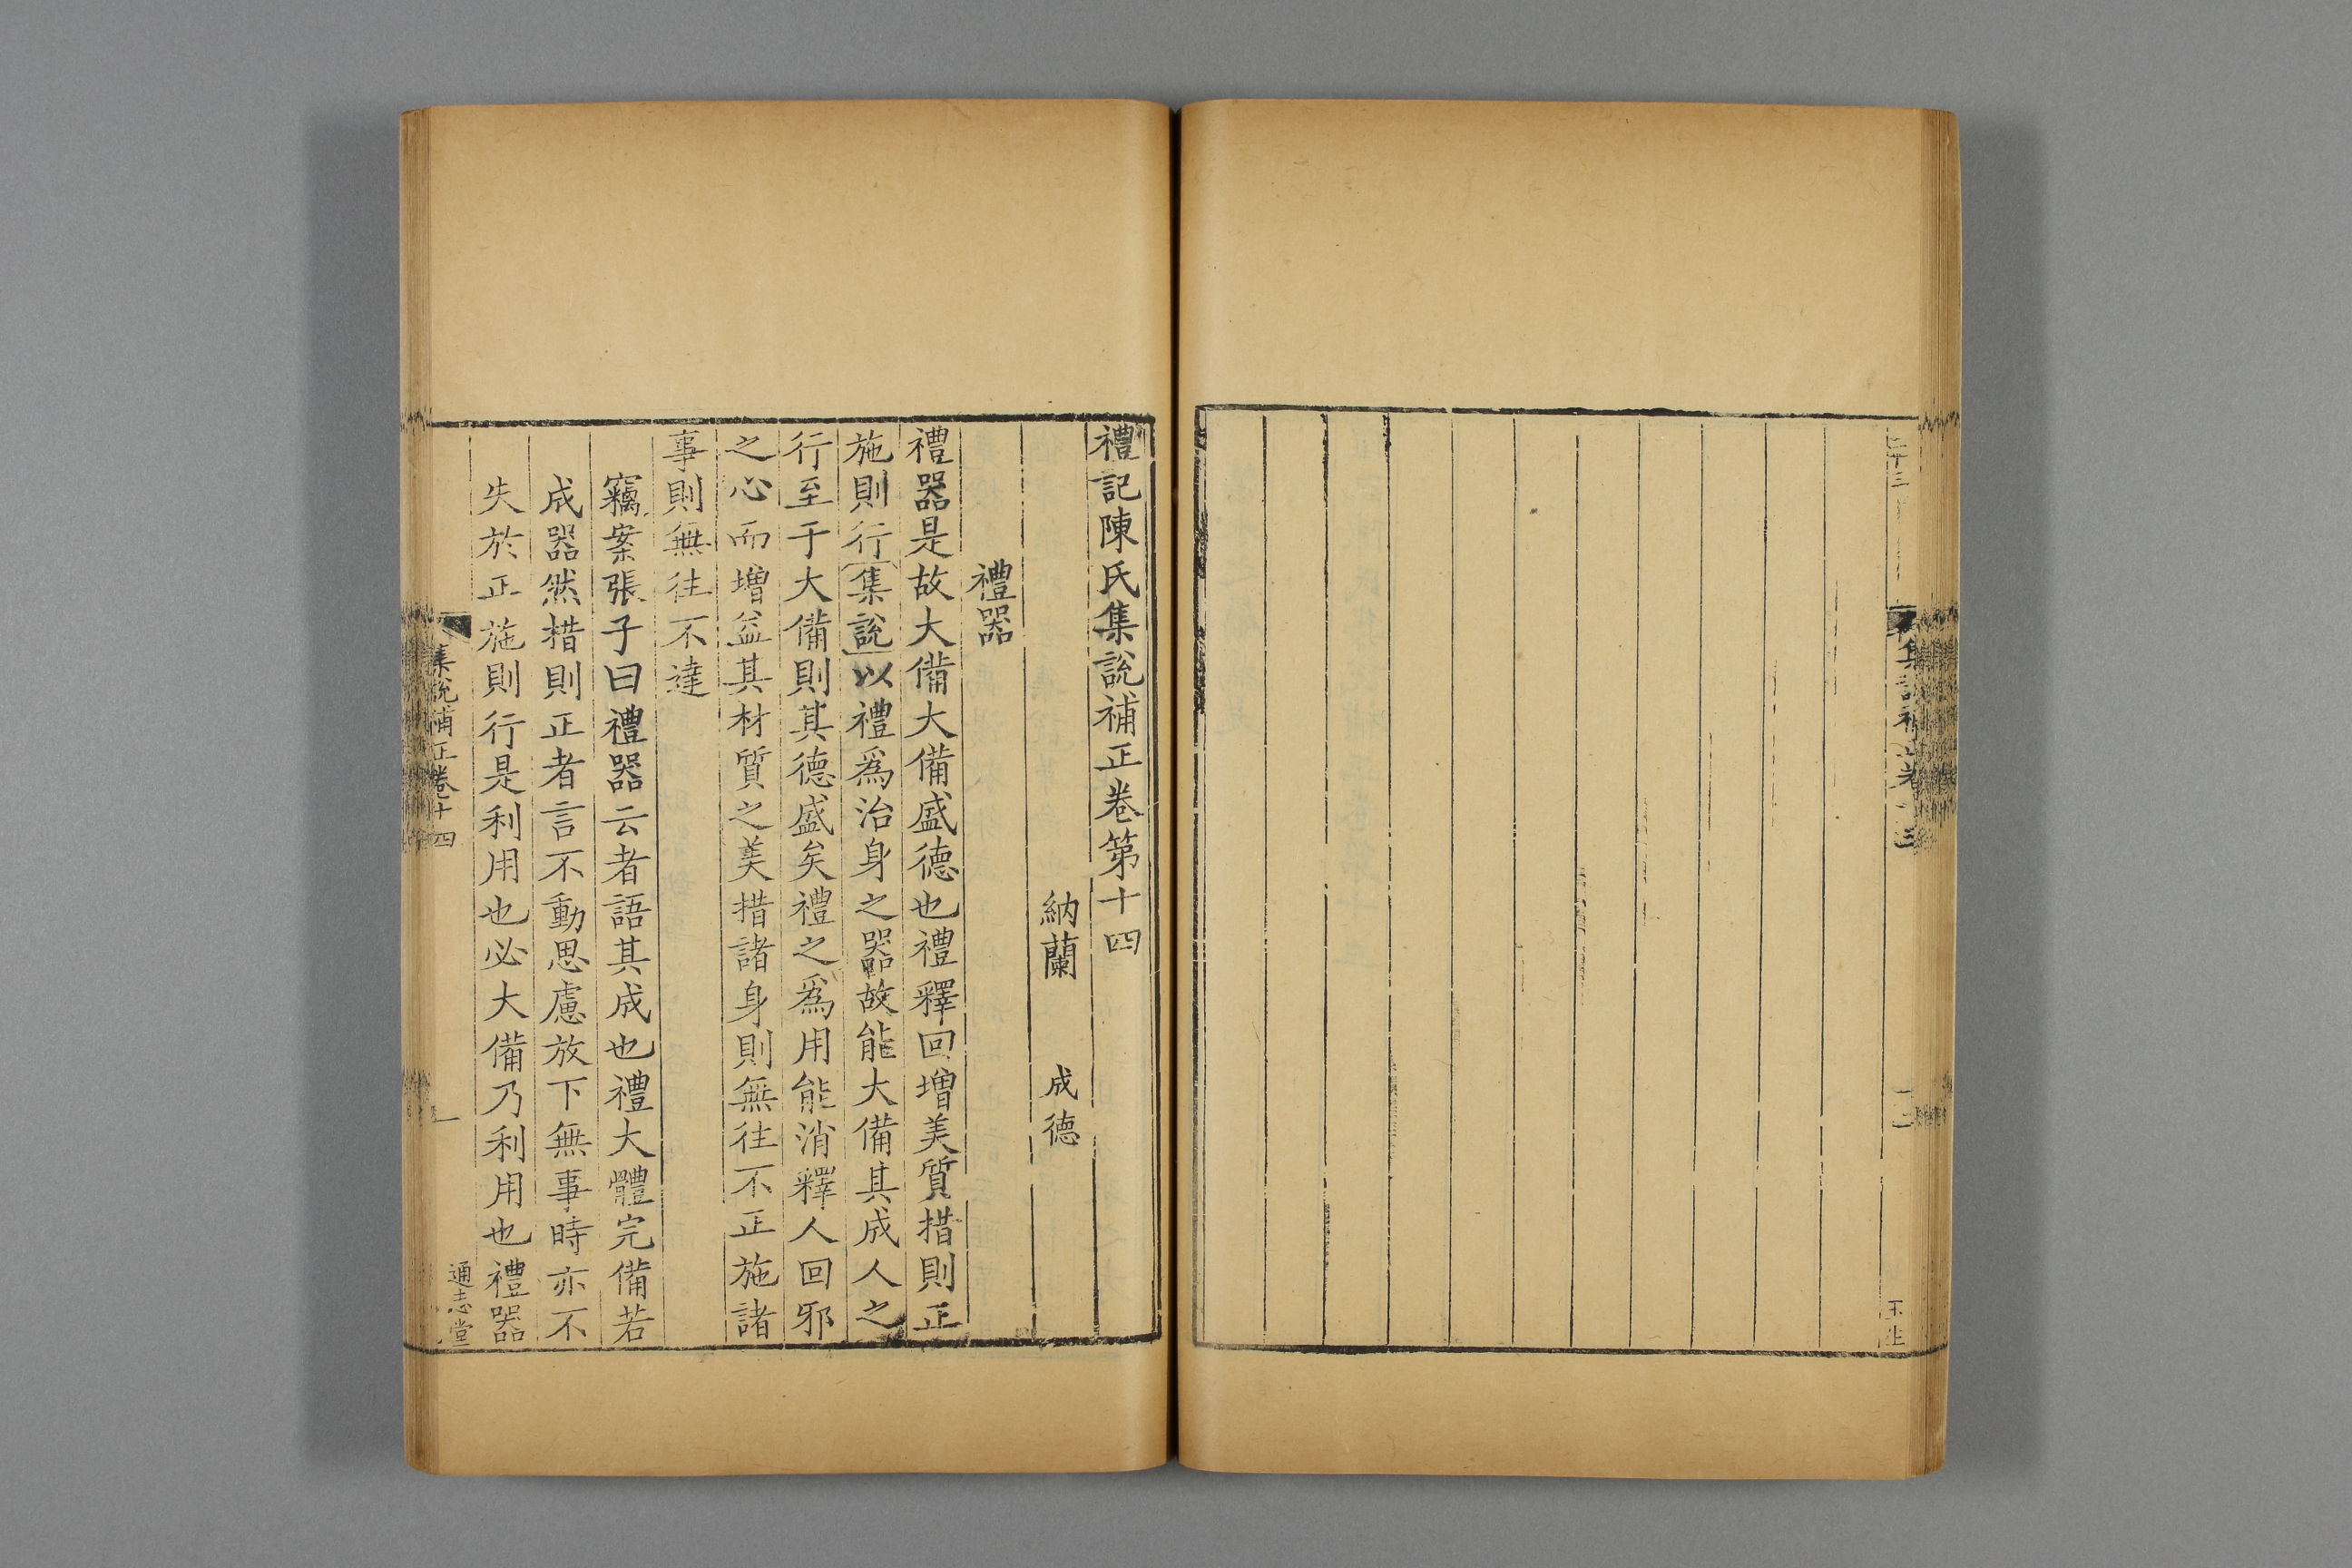 禮記陳氏集說補正卷第十四
納蘭 成德
禮器
禮器是故大備大備盛德也禮釋回增美質措則正
施則行集說以禮爲治身之器故能大備其成人之
行至于大備則其德盛矣禮之爲用能消釋人回邪
之心而增益其材質之美措諸身則無往不正施諸
事則無往不達
竊案張子曰禮器云者語其成也禮大體完備若
成器然措則正者言不動思慮放下無事時亦不
失於正施則行是利用也必大備乃利用也禮器
集說補正卷十四
一
通志堂